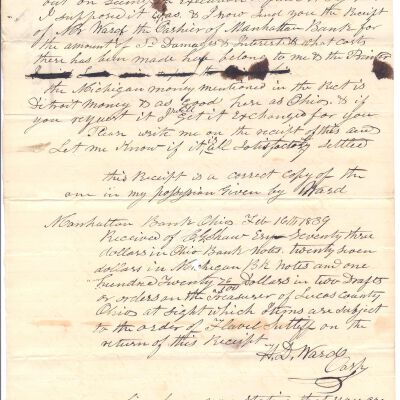 out on
I supposed it was, & I now find you the Receipt
of Mr Ward the Cashier of Manhattan Bank for
the amount, So Damages & Interest & what costs
there has been made here belong to me & the Printer
the Michigan money mentioned in the Rect is
Detroit Money & as Good here as Ohio, & if
you request it I will Get it Exchanged for you
Please write me on the receipt of this and
Let me Know if it is all Satisfactory settled
this Receipt is a correct Copy of the
one in my possession Given by Ward
Manhattan Bank Ohio Feb 16th 1839
Received of Shaw Esqr Seventy three
dollars in Ohio Bank Notes, twenty seven
dollars in Michigan Bk Notes and one
hundred Twenty 26/100 Dollars in two Drafts
or orders on the Treasurer of Lucas County
Ohio at Sight which sums are subject
to the order of Flavel Sutliff on the
return of this Receipt
H. D. Ward
Cash
that you are